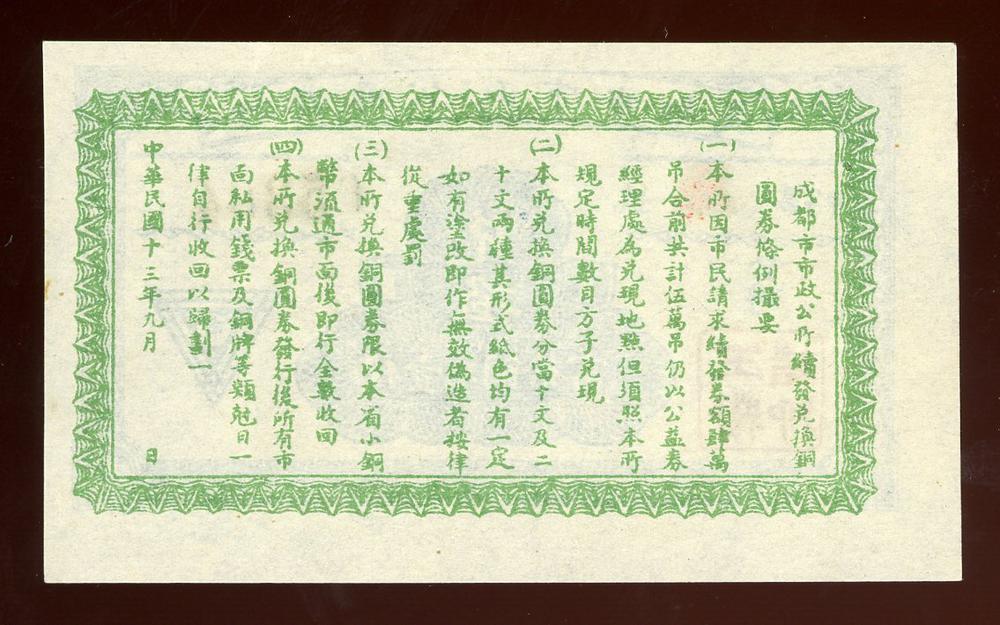 成都市市政公所續發兌換銅
圓券條例撮要
(一)本所因市民請求續發券額肆萬
吊合前共計伍萬吊仍以公益券
經理處為兌現地點但須照本所
規定時間數目方予兌現
(二)本所兌換銅圓券分當十文及二
十文兩種其形式紙色均有一定
如有塗改即作無效偽造者按律
從重處罰
(三)本所兌換銅圓券限以本省小銅
幣流通市面後即行全數收回
(四)本所兌換銅圓券發行後所有市
面私用錢票及銅牌等類尅日一
律自行收回以歸劃一
中華民國十三年九月 日